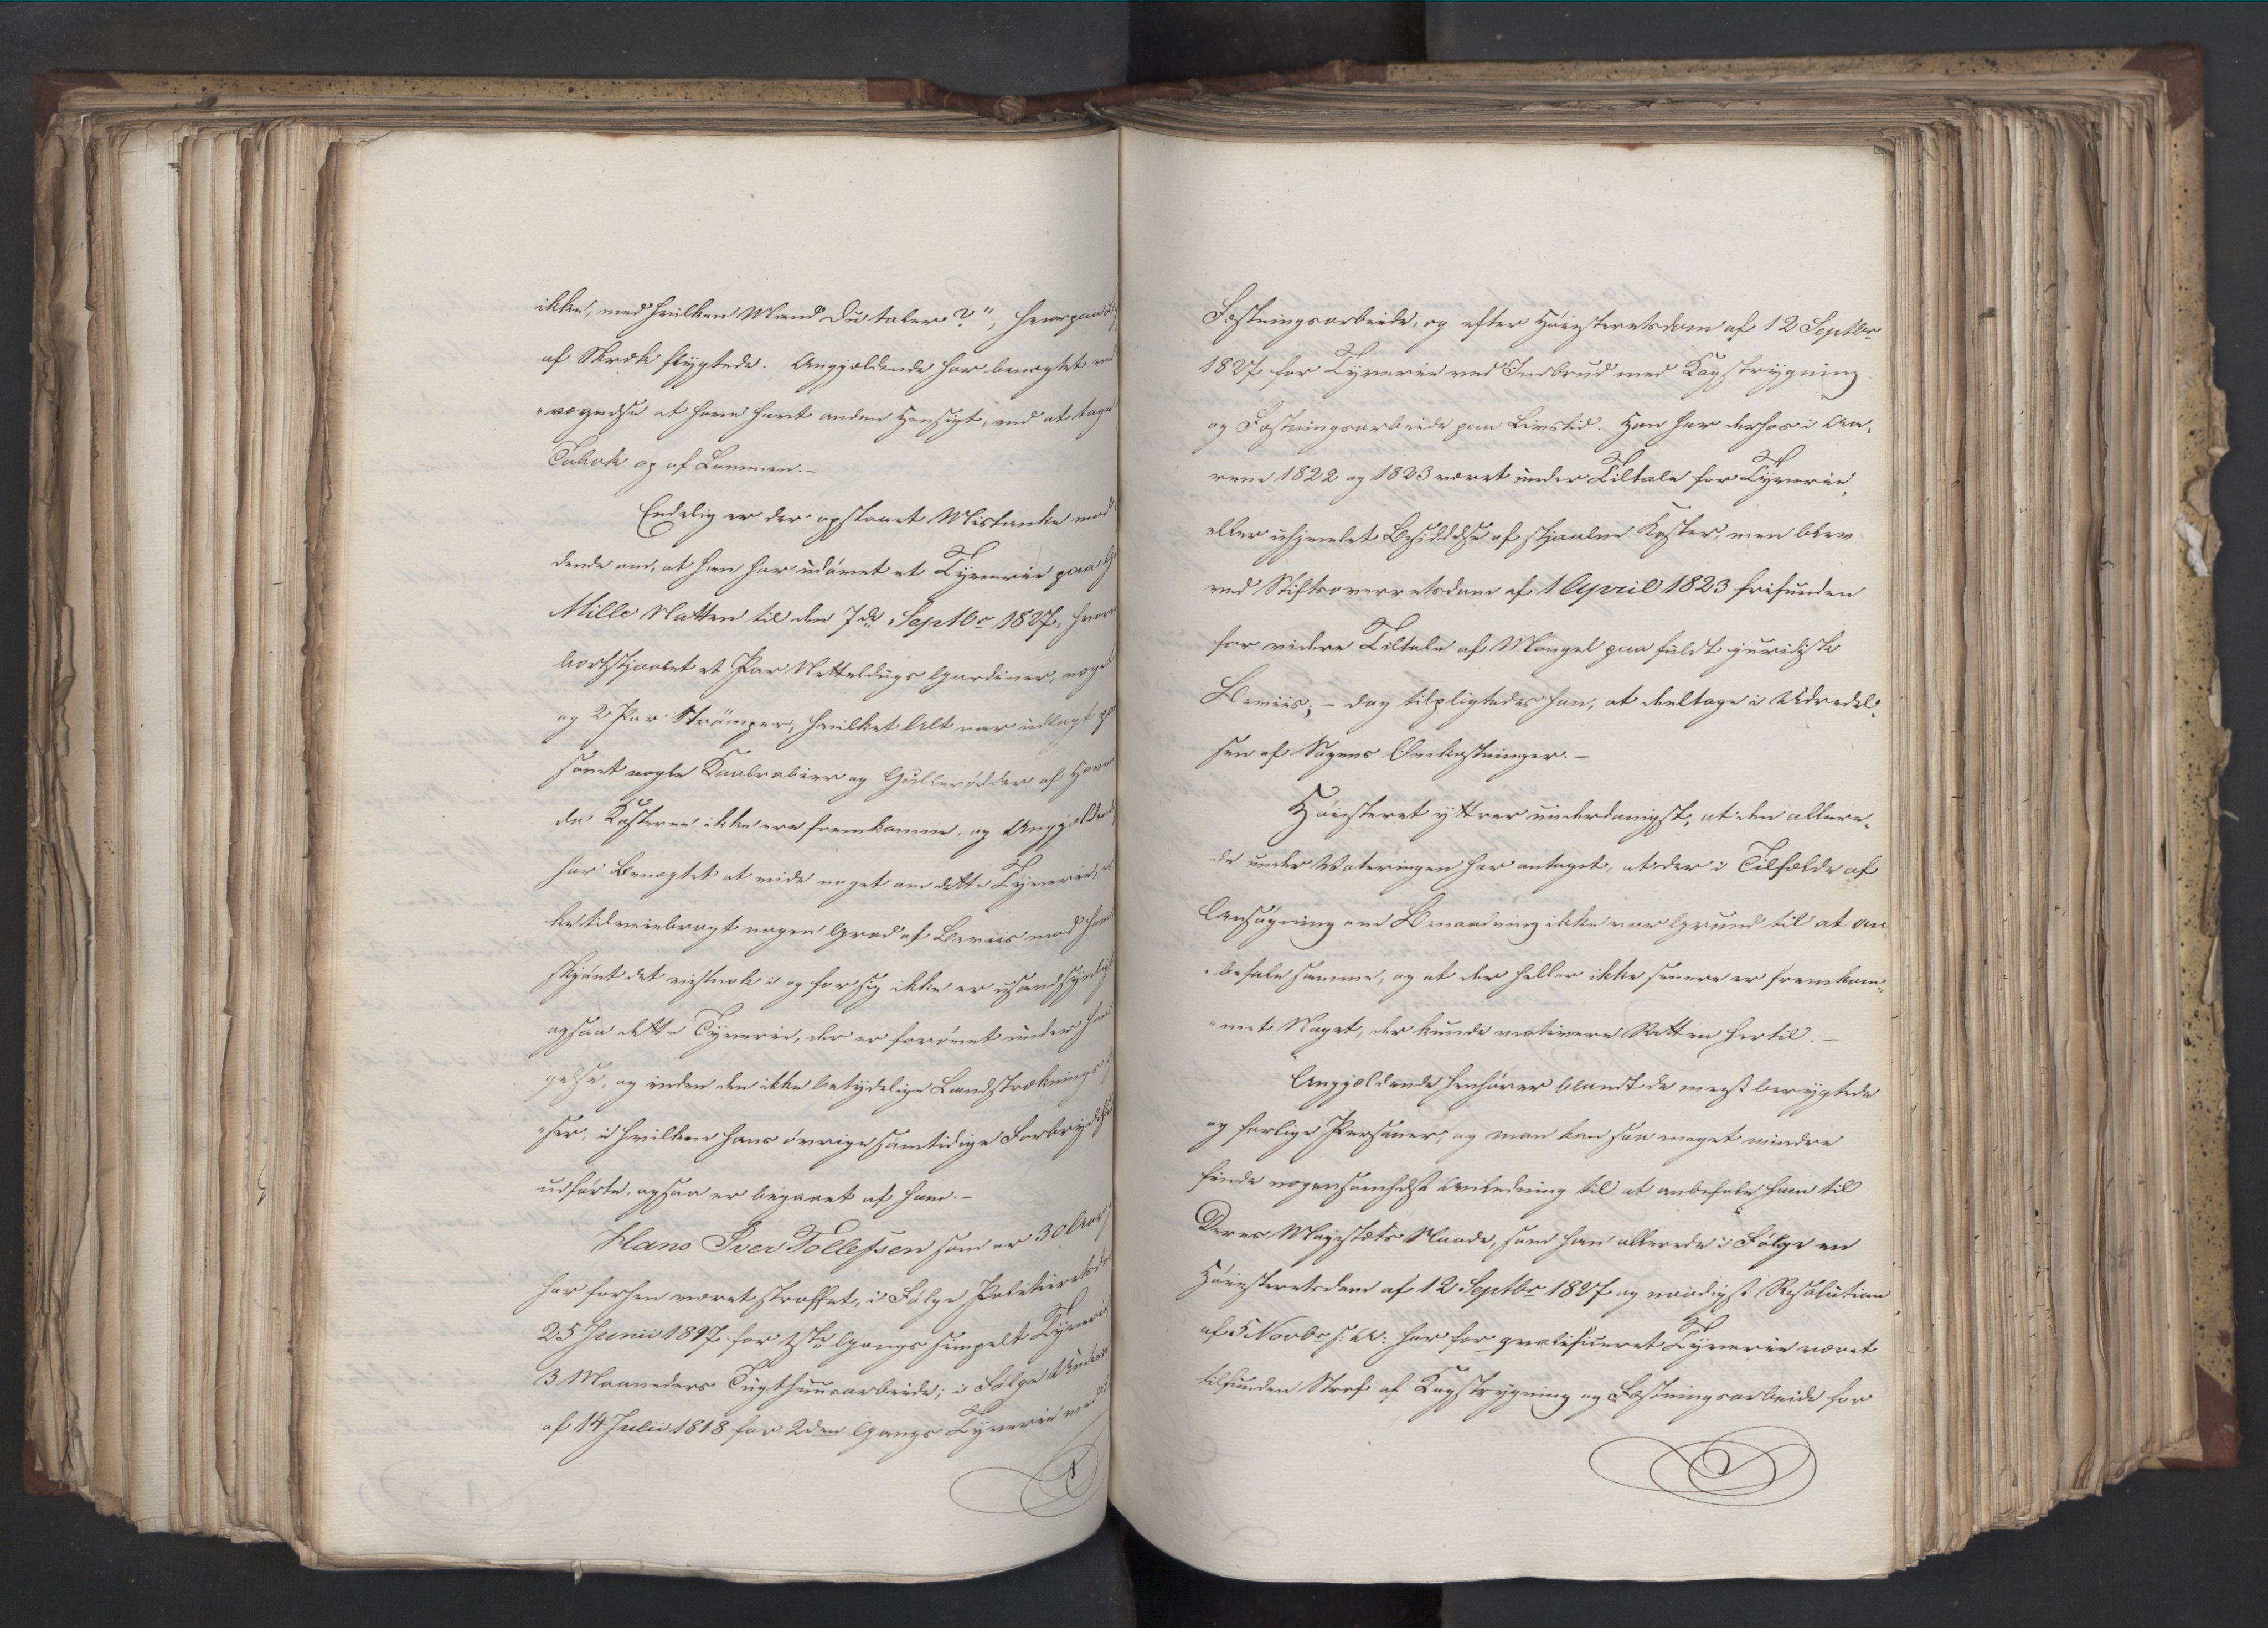 ikke, med hvilken Mand Du taler?", hvorpaa
af Skræk flygtede. Angjældende har benægtet ved
"vægelse at have havt anden Hensigt, end at tage
Tobak op af Lommen.-
Endelig er der opstaaet Mistanke mod
dende om, at han har udövet et Tyverie paa
Mille Natten til den 7de Septbr 1827, hvor
bortstjaalet et Par Netteldugs Gardiner, noget
og 2 Par Strömper, hvilket Alt var udlagt
samt nogle Kaalrabier og Gulleröddder af Haven
da Kosterne ikke ere fremkomne, og Angjælden
har Benægtet at vide noget om dette Tyverie,
ke tilveiebragt nogen Grad af Beviis mod ham
skjönt det vistnok i og for sig ikke er usandsynligt
ogsaa dette Tyverie, der er forövet under hans
gelse, og inden den ikke betydelige Landstræknings
"ser, i hvilken hans övrige samtidige Forbrydelser
udförte, ogsaa er begaaet af ham.-
Hans Iver Tollefsen som er 30 Aar
har forhen været straffet, i Fölge Politieretsdom
25 Junii 1817 for 1ste Gangs simpelt Tyverie
3 Maaneders Tugthuusarbeide; i Fölge
af 14 Julii 1818 for 2den Gangs Tyverie med
Fæstningsarbeide, og efter Höiesteretsdom af 12 Septbr
1827 for Tyverie ved Indbrud med Kagstrygning
og Fæstningsarbeide paa Livstid. Han har derhos i Aa,
rene 1822 og 1823 været under Tiltale for Tyverie,
eller uhjemlet Besiddelse af stjaalne Koster, men blev
ved Stiftsoverretsdom af 1 April 1823 frifunden
for videre Tiltale af Mangel paa fuldt juridisk
Beviis; - dog tilpligtedes han, at deeltage i Udredel,
sen af Sagens Omkostninger.-
Höiesteret yttrer underdanigst, at den allere,
de under Voteringen har antaget, at der i Tilfælde af
Ansögning om Benaadning ikke var Grund til at an
"befale samme, og at der heller ikke senere er fremkom,
"met Noget, der kunde motivere Retten hertil.-
Angjældende henhörer blandt de meest berygtede
og farlige Personer, og man kan saa meget mindre
finde nogensomhelst Anledning til at anbefale ham til
Deres Majestæts Naade, som han allerede i Fölge en
Höiesteretsdom af 12 Septbr 1827 og naadigst Resolution
af 5 Novbr s: A: har for qvalificeret Tyverie været
tilfunden Straf af Kagstrygning og Fæstningsarbeide for